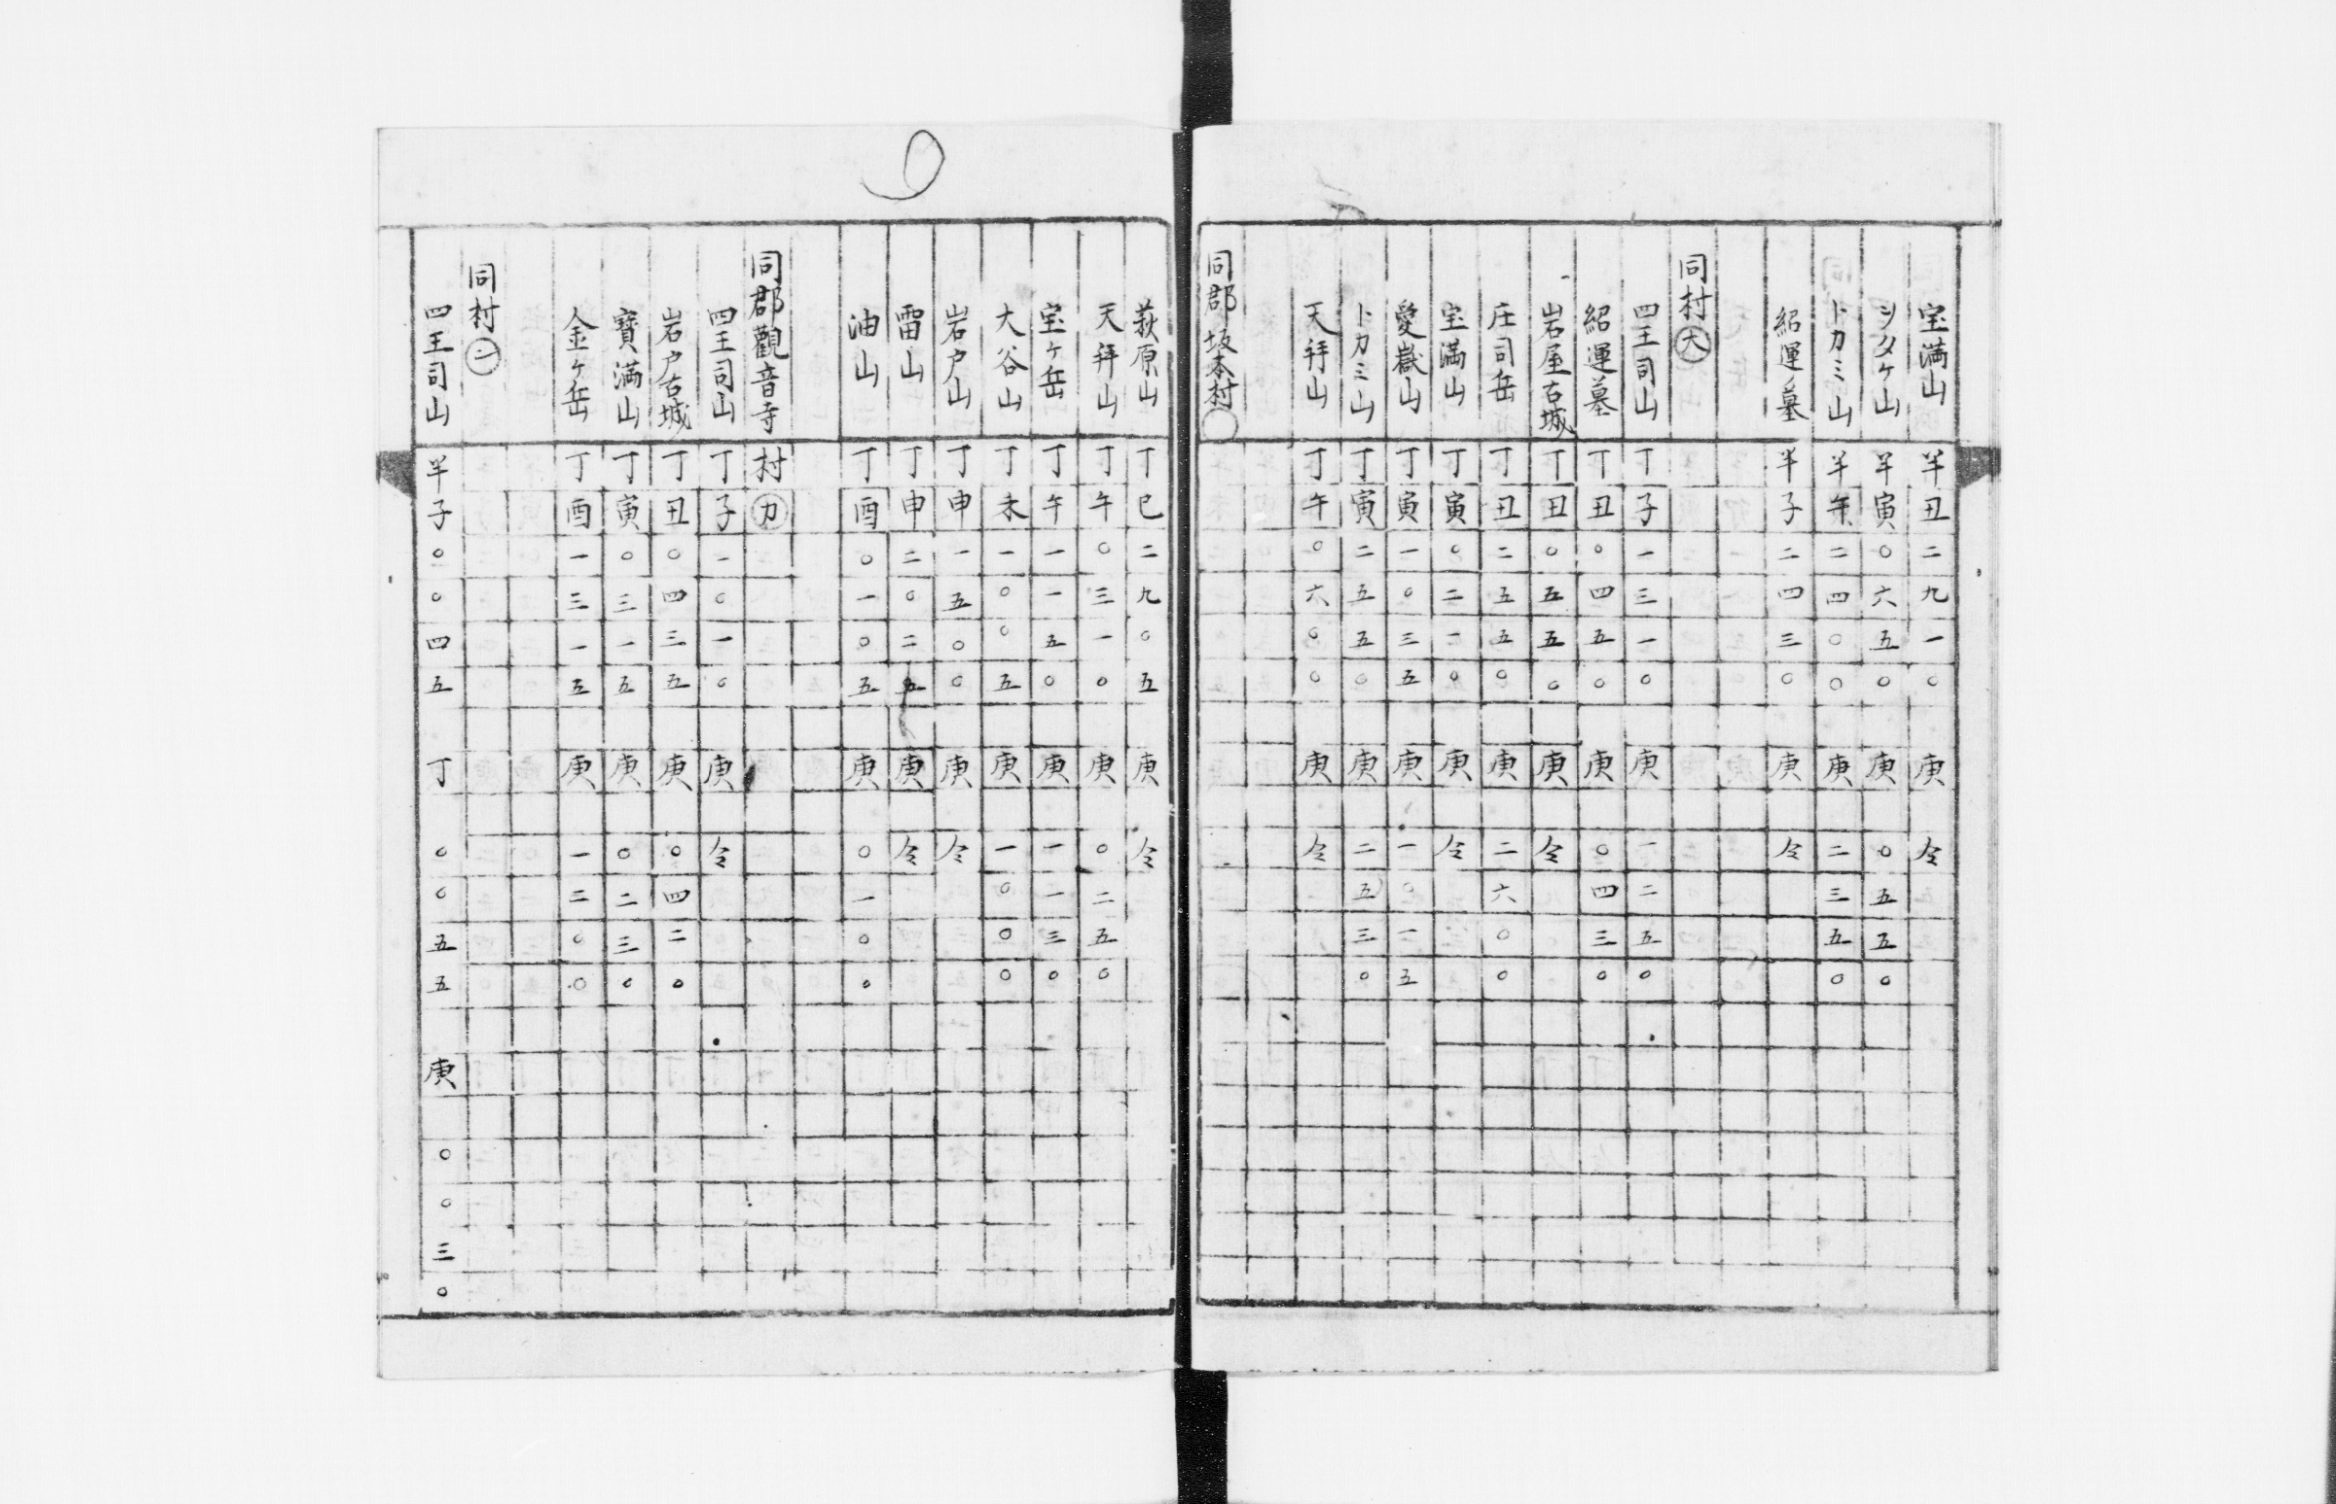 宝満山 半丑二九一〇 庚 仝
シタケ山 半寅〇六五〇 庚 〇五五〇
トカミ山 半年二四〇〇 庚 二三五〇
紹運墓 半子二四三〇 庚 仝
同村㊅
四王司山 丁子一三一〇 庚 一二五〇
紹運墓 丁丑〇四五〇 庚 〇四三〇
岩屋古城 丁丑〇五五〇 庚 仝
庄司岳 丁丑二五五〇 庚 二六〇〇
宝満山 丁寅〇二一〇 庚 仝
愛嶽山 丁寅一〇三五 庚 一〇一五
トカミ山 丁寅二五五〇 庚 二五三〇
天拜山 丁午〇六〇〇 庚 仝
同郡坂本村〇
萩原山 丁巳二九〇五 庚 仝
天拜山 丁午〇三一〇 庚 〇二五〇
宝ヶ岳 丁午一一五〇 庚 一一三〇
大谷山 丁未一〇〇五 庚 一〇〇〇
岩戸山 丁申一五〇〇 庚 仝
雷山 丁申二〇二五 庚 仝
油山 丁酉〇一〇五 庚 〇一〇〇
同郡觀音寺村㋕
四王司山 丁子一〇一〇 庚 仝
岩戸古城 丁丑〇四三五 庚 〇四二〇
寳満山 丁寅〇三一五 庚 〇二三〇
金ヶ岳 丁酉一三一五 庚 一二〇〇
同村㊁
四王司山 半子〇〇四五 丁 〇〇五五 庚 〇〇三〇